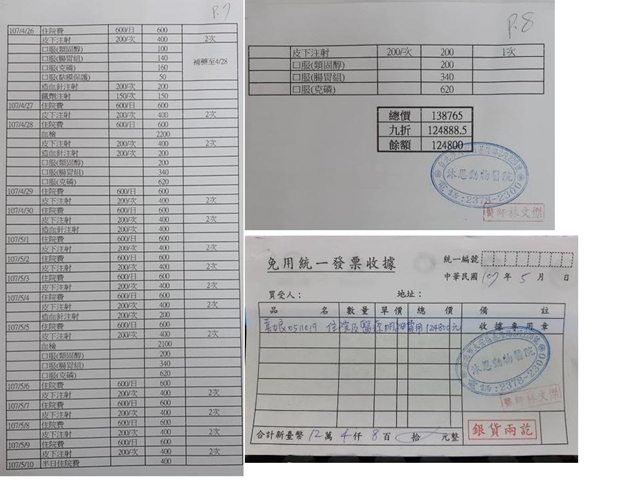 P.7
107/4/26 住院費 600/日 600
皮下注射 200/次 400 2次
口服(類固醇) 100 補藥至4/28
口服(腸胃組) 140
口服(克磷) 160
口服(黏膜保護) 50
造血針注射 200/次 200
鐵劑注射 150/次 150
107/4/27 住院費 600/日 600
皮下注射 200/次 400 2次
107/4/28 住院費 600/日 600
血檢 2200
皮下注射 200/次 400 2次
造血針注射 200/次 200
口服(類固醇) 200
口服(腸胃組) 340
口服(克磷) 620
107/4/29 住院費 600/日 600
皮下注射 200/次 400 2次
107/4/30 住院費 600/日 600
皮下注射 200/次 400 2次
造血針注射 200/次 200
107/5/1 住院費 600/日 600
皮下注射 200/次 400 2次
107/5/2 住院費 600/日 600
皮下注射 200/次 400 2次
107/5/3 住院費 600/日 600
皮下注射 200/次 400 2次
107/5/4 住院費 600/日 600
皮下注射 200/次 400 2次
造血針注射 200/次 200
107/5/5 住院費 600/日 600
皮下注射 200/次 400 2次
血檢 2100
口服(類固醇) 200
口服(腸胃組) 340
口服(克磷) 620
107/5/6 住院費 600/日 600
皮下注射 200/次 400 2次
107/5/7 住院費 600/日 600
皮下注射 200/次 400 2次
107/5/8 住院費 600/日 600
皮下注射 200/次 400 2次
107/5/9 住院費 600/日 600
皮下注射 200/次 400 2次
107/5/10 半日住院費 400
P.8
皮下注射 200/次 200 1次
口服(類固醇) 200
口服(腸胃組) 340
口服(克磷) 620
總價 138765
九折 124888.5
餘額 124800
沐恩動物醫院
電話:2378-2300
醫師林文傑
免用統一發票收據
統一編號
中華民國 107 年 5 月 日
買受人: 地址:
品名 數量 單價 總價 備註
收據專用章
住院及醫療 費用 124810元
沐恩動物醫院
電話:2378-2300
醫師林文傑
銀貨兩訖
合計新臺幣 12 萬 4 仟 8 百 拾 元整